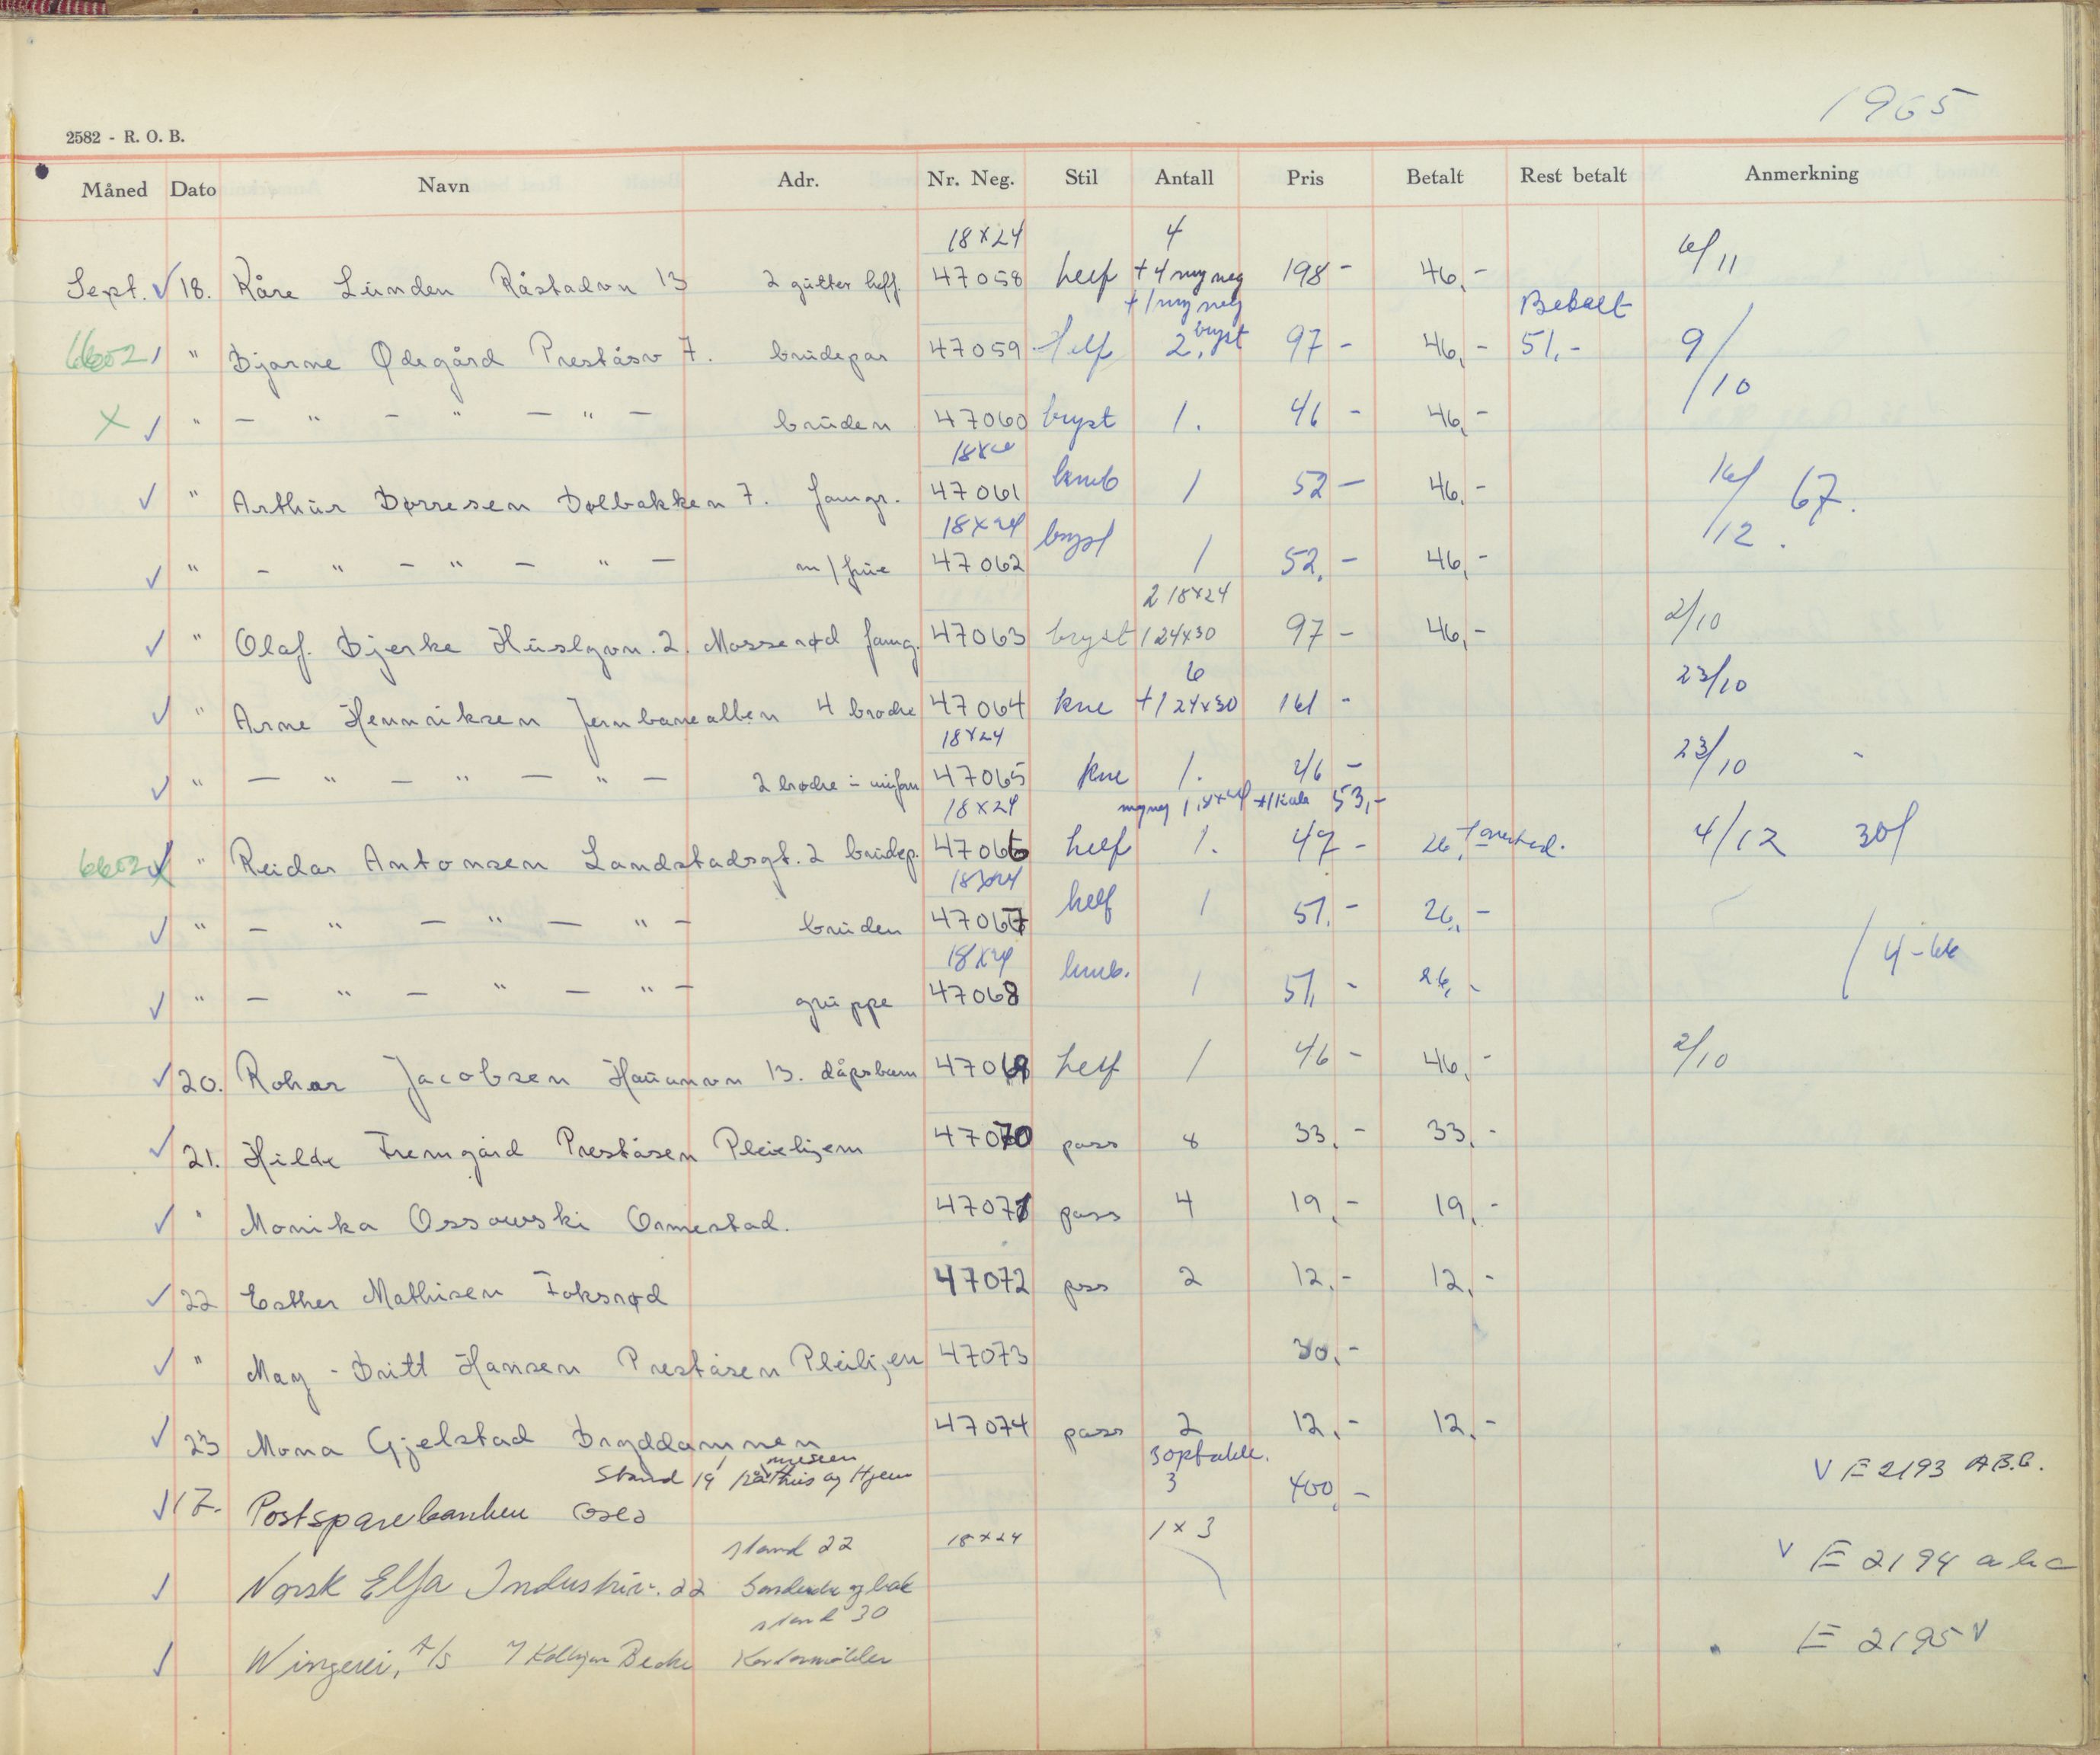 1965
2582 - R. O. B.
Måned Dato Navn Adr. Nr. Neg. Stil Antall Pris Betalt Rest betalt Anmerkning
18x24 4
Sept. 18. Kåre Lunden Råstadvn 13 2 gutter helf. 47058 helf + 4 ny neg 198 - 46,- 6/11
+ 1 ny neg Betalt
6602 " Bjarne Ødegård Preståsv 7. brudepar 47059 helf 2 bryst 97 - 46,- 51,- 9/10
x " - " - " - " - bruden 47060 bryst 1. 46 - 46,-
" Arthur Børresen Dølbakken 7. famgr. 47061 kneb 1 52 - 46,- 16/12. 67.
18x24
" - " - " - " - m/frue 47062 bryst 1 52,- 46,-
2 18x24
" Olaf. Bjerke Huslyvn. 2. Mosserød famg. 47063 bryst 1 24x30 97 - 46,- 2/10
6
" Arne Hennriksen Jernbanealleen 4 brødre 47064 kne +1 24x30 161 - 23/10
18x24
" - " - " - " - 2 brødre i uniform 47065 kne 1. 46 - 23/10
18x24 ny neg 1 18x24 53,-
6602 " Reidar Antonsen Landstadsgt. 2 brudep. 47066 helf 1. 47 - 26, 4/12 30/
18x24
" - " - " - " - bruden 47067 helf 1 51,- 26,-
18x24
" - " - " - " - gruppe 47068 kneb. 1 51,- 26,- / 4-66
20. Rohar Jacobsen Hauanvn 13. dåpsbarn 47069 helf 1 46 - 46,- 2/10
21. Hilde Fremgård Preståsen Pleiehjem 47070 pass 8 33,- 33,-
" Monika Ossowski Ormestad. 47071 pass 4 19,- 19,-
22 Esther Mathisen Fokserød 47072 pass 2 12,- 12,-
" May - Britt Hansen Preståsen Pleihjem 47073 30,-
23 Mona Gjelstad Bryddammen 47074 pass 2 12,- 12,-
messen 3 optakk.
Stand 19 Råthus og Hjem 3 V E 2193 A.B.C.
17. Postsparebanken Oslo 400,-
stand 22 18x24 1 x 3 V E 2194 a b c
Norsk Elfa Industriv. 22
stand 30
Wingerei, A/S E 2195 V